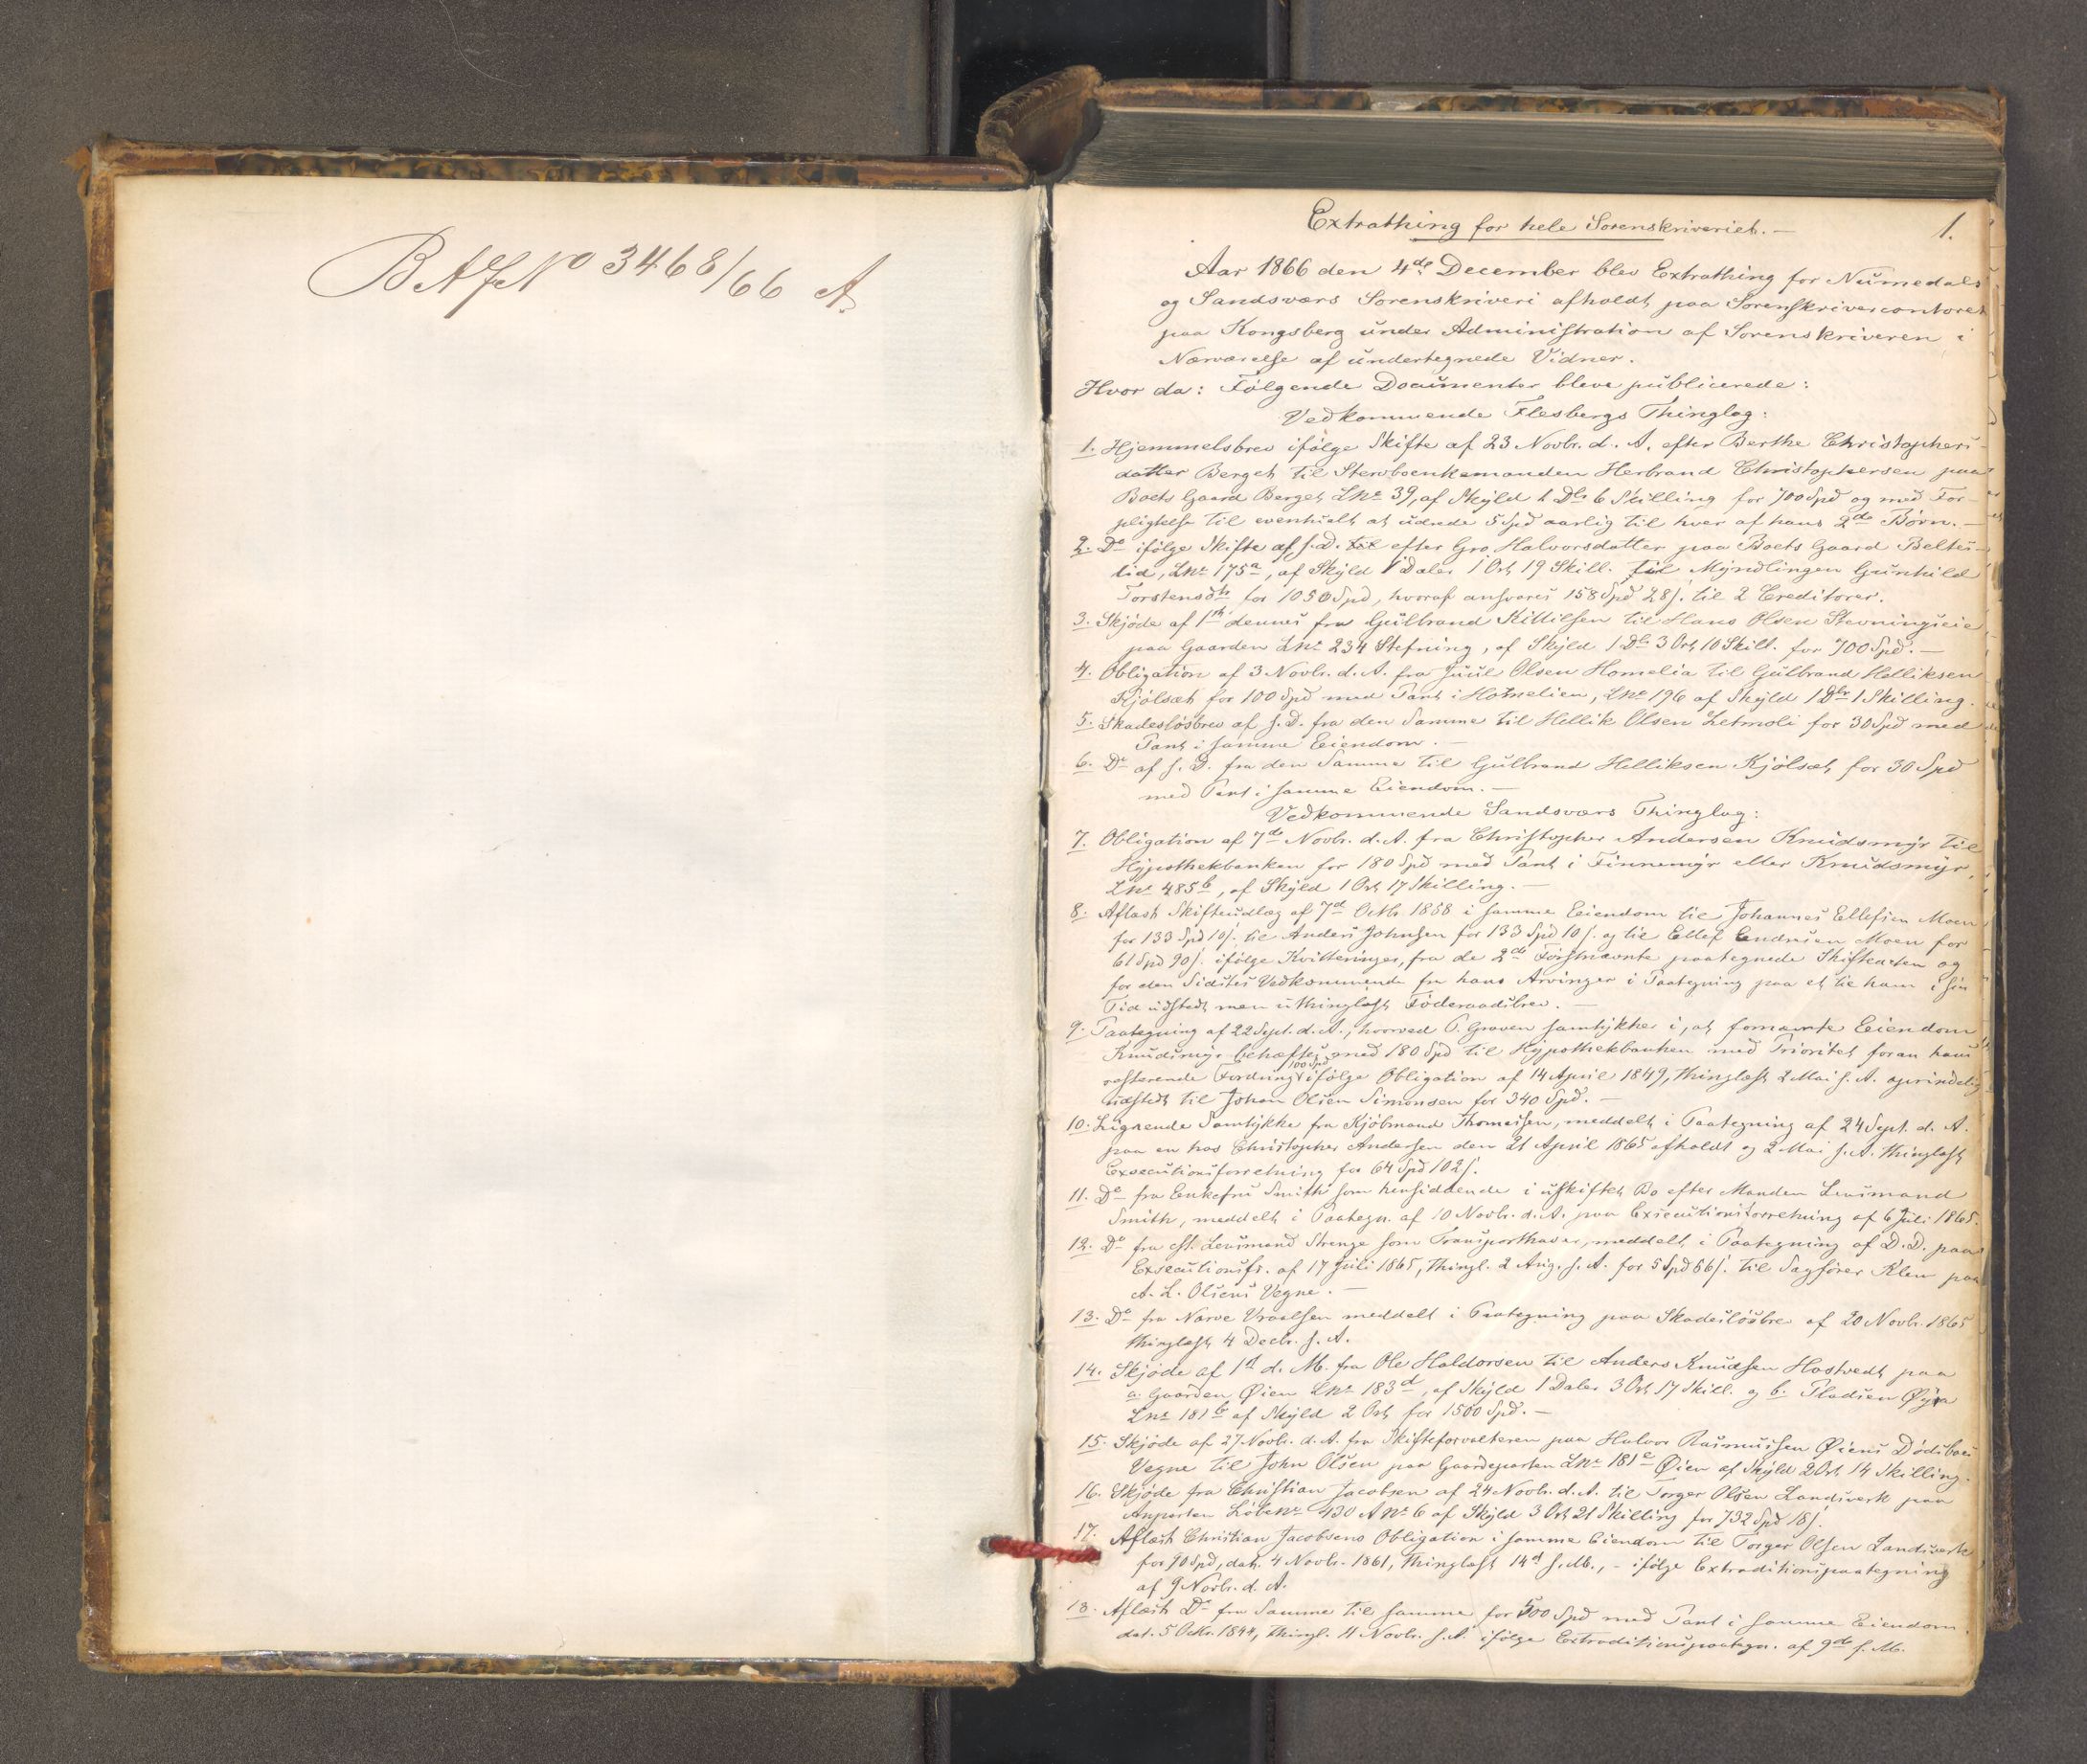 BAfNo 3468/66 A.
Extrathing for hele Sorenskriveriet. —
1.
Aar 1866 den 4de December blev Extrathing for Numedals
og Sandsværs Sorenskriveri afholdt paa Sorenskrivercontoret
paa Kongsberg under Administration af Sorenskriveren i
Nærværelse af undertegnede Vidner.
Hvor da: Følgende Documenter bleve publicerede:
Vedkommende Flesbergs Thinglag:
1. Hjemmelsbrev ifølge Skifte af 23 Novbr. d. A. efter Berthe Christophers-
datter Berget til Stervboenkemanden Herbrand Christophersen paa
Boets Gaard Berget LNr 39, af Skyld 1 Dlr 6 Skilling for 700 Spd og med For-
pligtelse til eventuelt at udrede 5 Spd aarlig til hver af hans 2de Børn. —
2. Do ifølge Skifte af s. D. til efter Gro Halvorsdatter paa Boets Gaard Beltes-
lid, LNr 175a, af Skyld 1 Daler 1 Ort 19 Skill. til Myndlingen Gunhild
Torstensdtr for 1050 Spd, hvoraf ansvares 158 Spd 28 s. til 2 Creditorer.
3. Skjøde af 1ste dennes fra Gulbrand Kittilsen til Hans Olsen Stevningseie
paa Gaarden LNr 234 Stefning, af Skyld 1 Dlr 3 Ort 10 Skill. for 700 Spd. —
4. Obligation af 3 Novbr. d. A. fra Juul Olsen Homelia til Gulbrand Helliksen
Kjølsæt for 100 Spd med Pant i Homelien, LNr 196 af Skyld 1 Dlr 1 Skilling.
5. Skadesløsbrev af s. D. fra den Samme til Hellik Olsen Letmoli for 30 Spd med
Pant i samme Eiendom. —
6. Do af s. D. fra den Samme til Gulbrand Helliksen Kjølsæt for 30 Spd
med Pant i samme Eiendom. —
Vedkommende Sandsværs Thinglag:
7. Obligation af 7de Novbr. d. A. fra Christopher Andersen Knudsmyr til
Hypothekbanken for 180 Spd med Pant i Finnemyr eller Knudsmyr,
LNr 485b, af Skyld 1 Ort 17 Skilling. —
8. Aflæst Skifteudlæg af 7de Octbr. 1858 i samme Eiendom til Johannes Ellefsen Moen
for 133 Spd 10 s. til Anders Johnsen for 133 Spd 10 s. og til Ellef Endresen Moen for
61 Spd 90 s. ifølge Kvitteringer, fra de 2de Førstnævnte paategnede Skifteacten og
for den Sidstes Vedkommende fra hans Arvinger i Paategning paa et til ham i sin
Tid udstedt men uthinglæst Føderaadsbrev. —
9. Paategning af 22 Sept. d. A., hvorved P. Graven samtykker i, at fornævnte Eiendom
Knudsmyr behæftes med 180 Spd til Hypothekbanken med Prioritet foran hans
100 Spd
resterende Fordring ifølge Obligation af 14 April 1849, thinglæst 2 Mai s. A. oprindelig
udstedt til Johan Olsen Simonsen for 340 Spd. —
10. Lignende Samtykke fra Kjøbmand Thomassen, meddelt i Paategning af 24 Sept. d. A.
paa en hos Christopher Andersen den 21 April 1865 afholdt og 2 Mai s. A. thinglæst
Executionsforretning for 64 Spd 102 s.
11. Do fra Enkefru Smith som hensiddende i uskiftet Bo efter Manden Lensmand
Smith, meddelt i Paategn. af 10 Novbr. d. A. paa Executionsforretning af 6 Juli 1865.
12. Do fra cst. Lensmand Strenge som Transporthaver, meddelt i Paategning af D. D. paa
Executionsfr. af 17 Juli 1865, thingl. 2 Aug. s. A. for 5 Spd 56 s. til Sagfører Klem paa
A. L. Olsens Vegne. —
13. Do fra Narve Vraalsen meddelt i Paategning paa Skadesløsbrev af 20 Novbr. 1865
thinglæst 4 Decbr. s. A.
14. Skjøde af 1st d. M. fra Ole Haldorsen til Anders Knudsen Hostvedt paa
a. Gaarden Øien LNr 183d, af Skyld 1 Daler 3 Ort 17 Skill. og b. Pladsen Øya
LNr 181b af Skyld 2 Ort for 1500 Spd. —
15. Skjøde af 27 Novbr. d. A. fra Skifteforvalteren paa Halvor Rasmussen Øiens Dødsboes
Vegne til John Olsen paa Gaardeparten LNr 181c Øien af Skyld 2 Ort 14 Skilling.
16. Skjøde fra Christian Jacobsen af 24 Novbr. d. A. til Torger Olsen Landsverk paa
Anparten LøbeNr 430 A No 6 af Skyld 3 Ort 21 Skilling for 732 Spd 18 s.
17. Aflæst Christian Jacobsens Obligation i samme Eiendom til Torger Olsen Landsverk
for 90 Spd, dat. 4 Novbr. 1861, thinglæst 14d s. M., – ifølge Extraditionspaategning
af 9 Novbr. d. A.
18. Aflæst Do fra Samme til samme for 500 Spd med Pant i samme Eiendom.
dat. 5 Octbr. 1844, thingl. 4 Novbr. s. A. ifølge Extraditionspaategn. af 9de s. M.